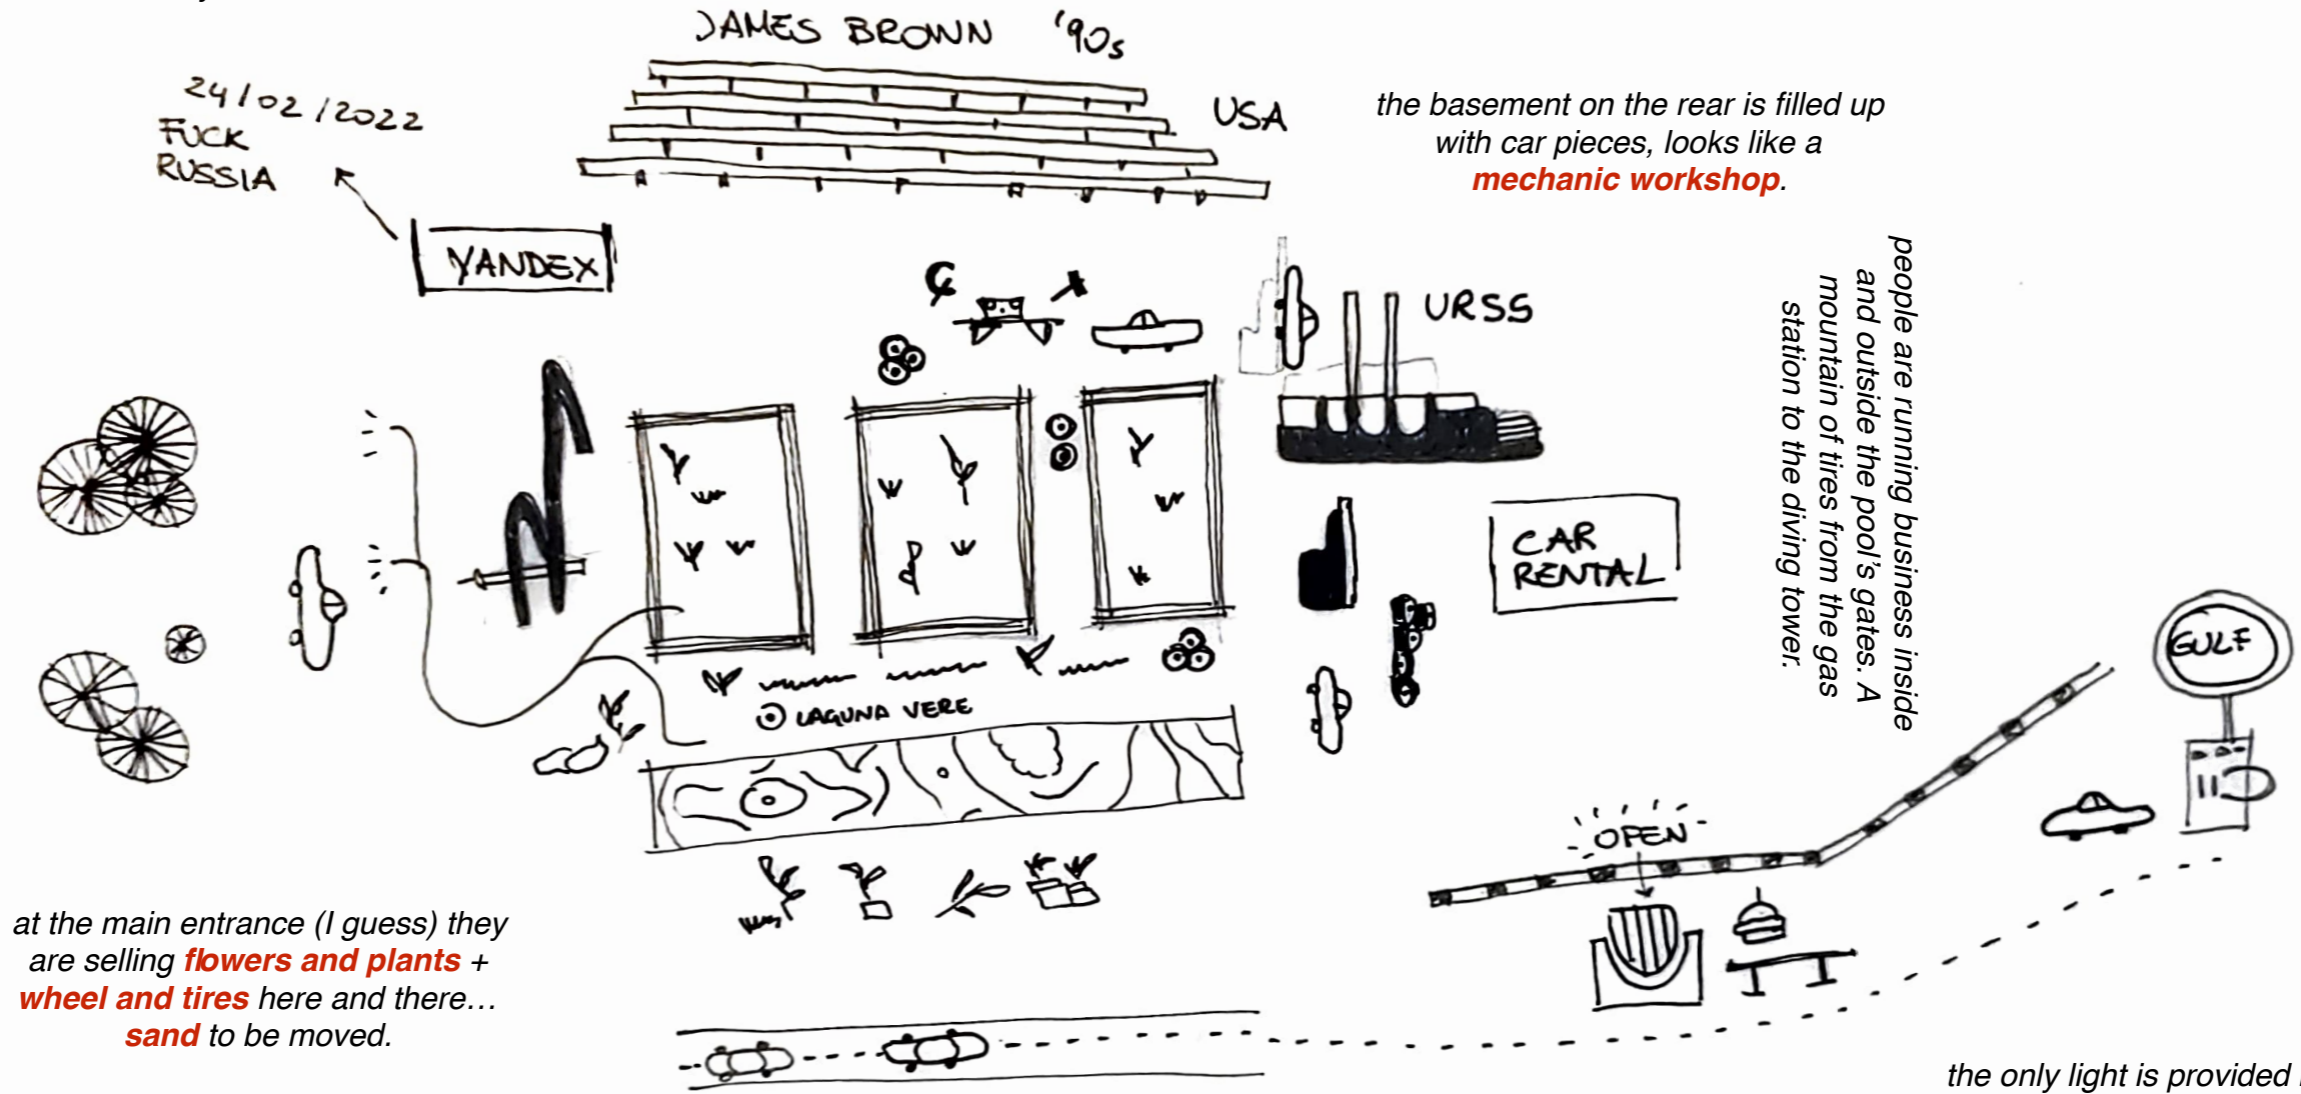 JAMES BROWN '90s
USA
24/02/2022
FUCK
RUSSIA
YANDEX
the basement on the rear is filled up
with car pieces, looks like a
mechanic workshop.
URSS
people are running business inside
and outside the pool's gates. A
mountain of tires from the gas
station to the diving tower.
CAR
RENTAL
GULF
LAGUNA VERE
OPEN
at the main entrance (I guess) they
are selling flowers and plants +
wheel and tires here and there…
sand to be moved.
the only light is provided